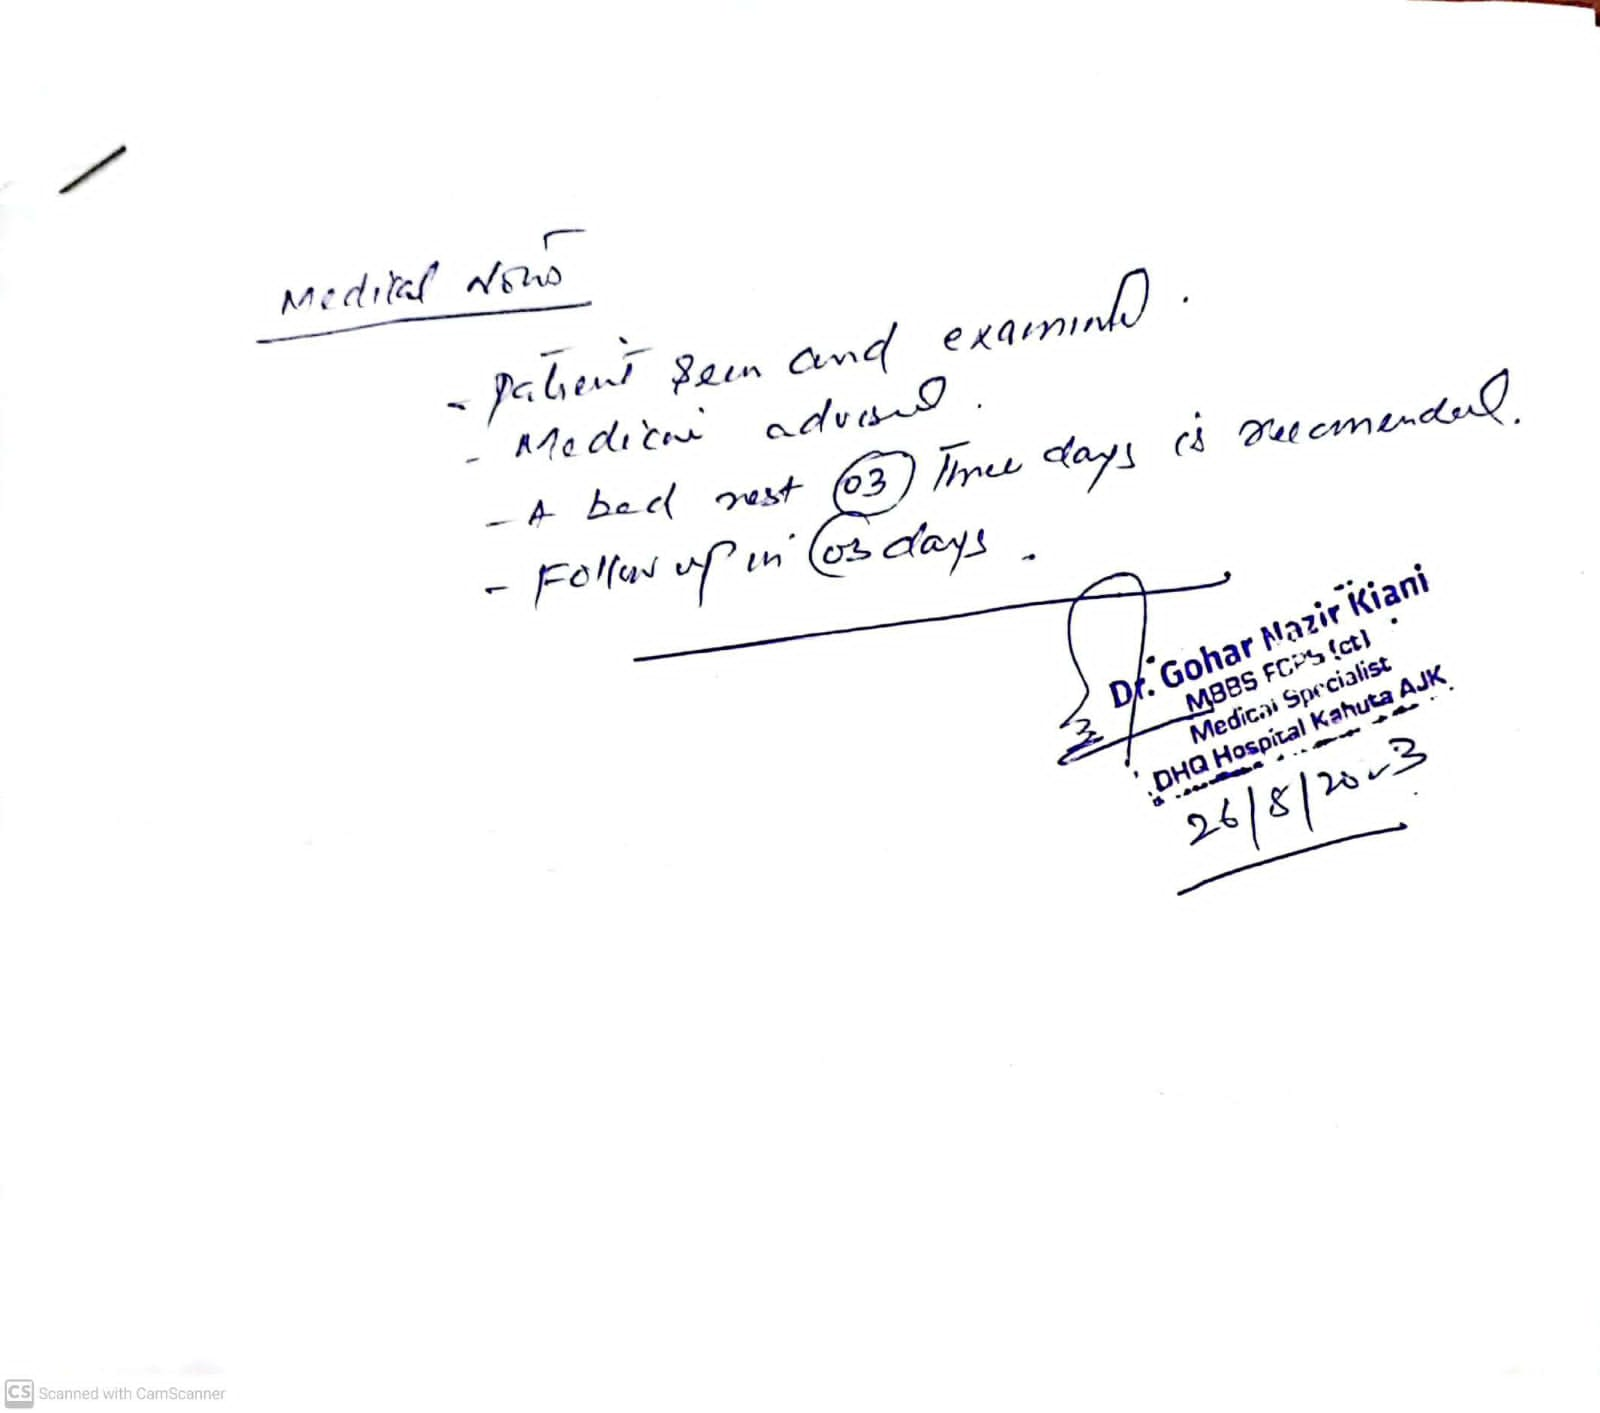 Medical
- Patient seen and examined.
- Medicine advised.
- A bed rest 03 Three days is recomended.
- Follow up in 03 days.
Dr. Gohar Nazir Kiani
MBBS FCPS (ct)
Medical Specialist
DHQ Hospital Kahuta AJK
26/8/2023
CS Scanned with CamScanner